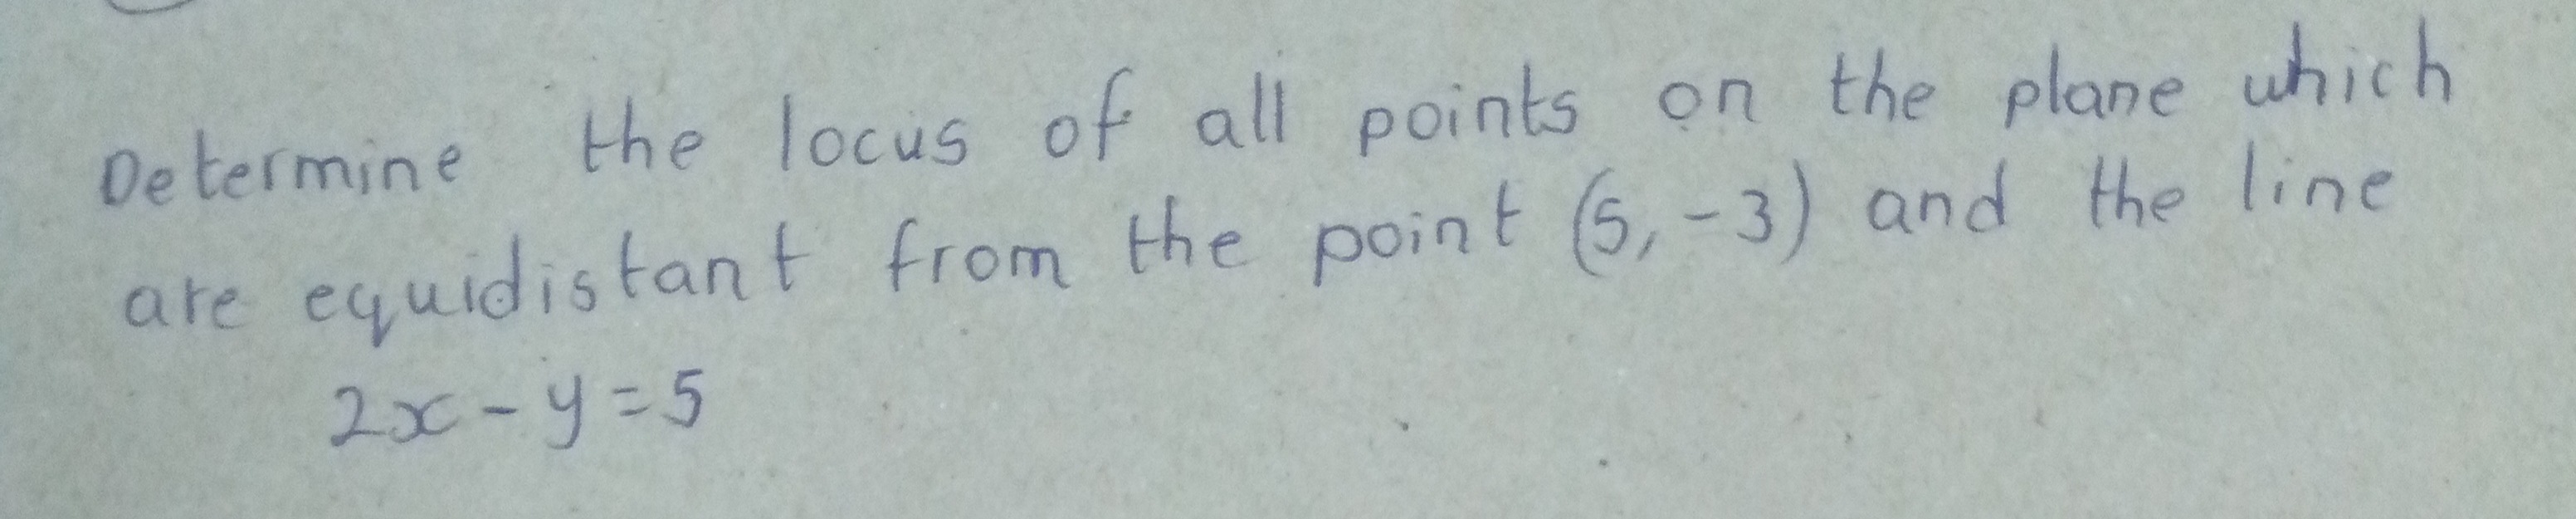 Determine the locus of all points on the plane which
are equidistant from the point (5, -3) and the line
2x - y = 5